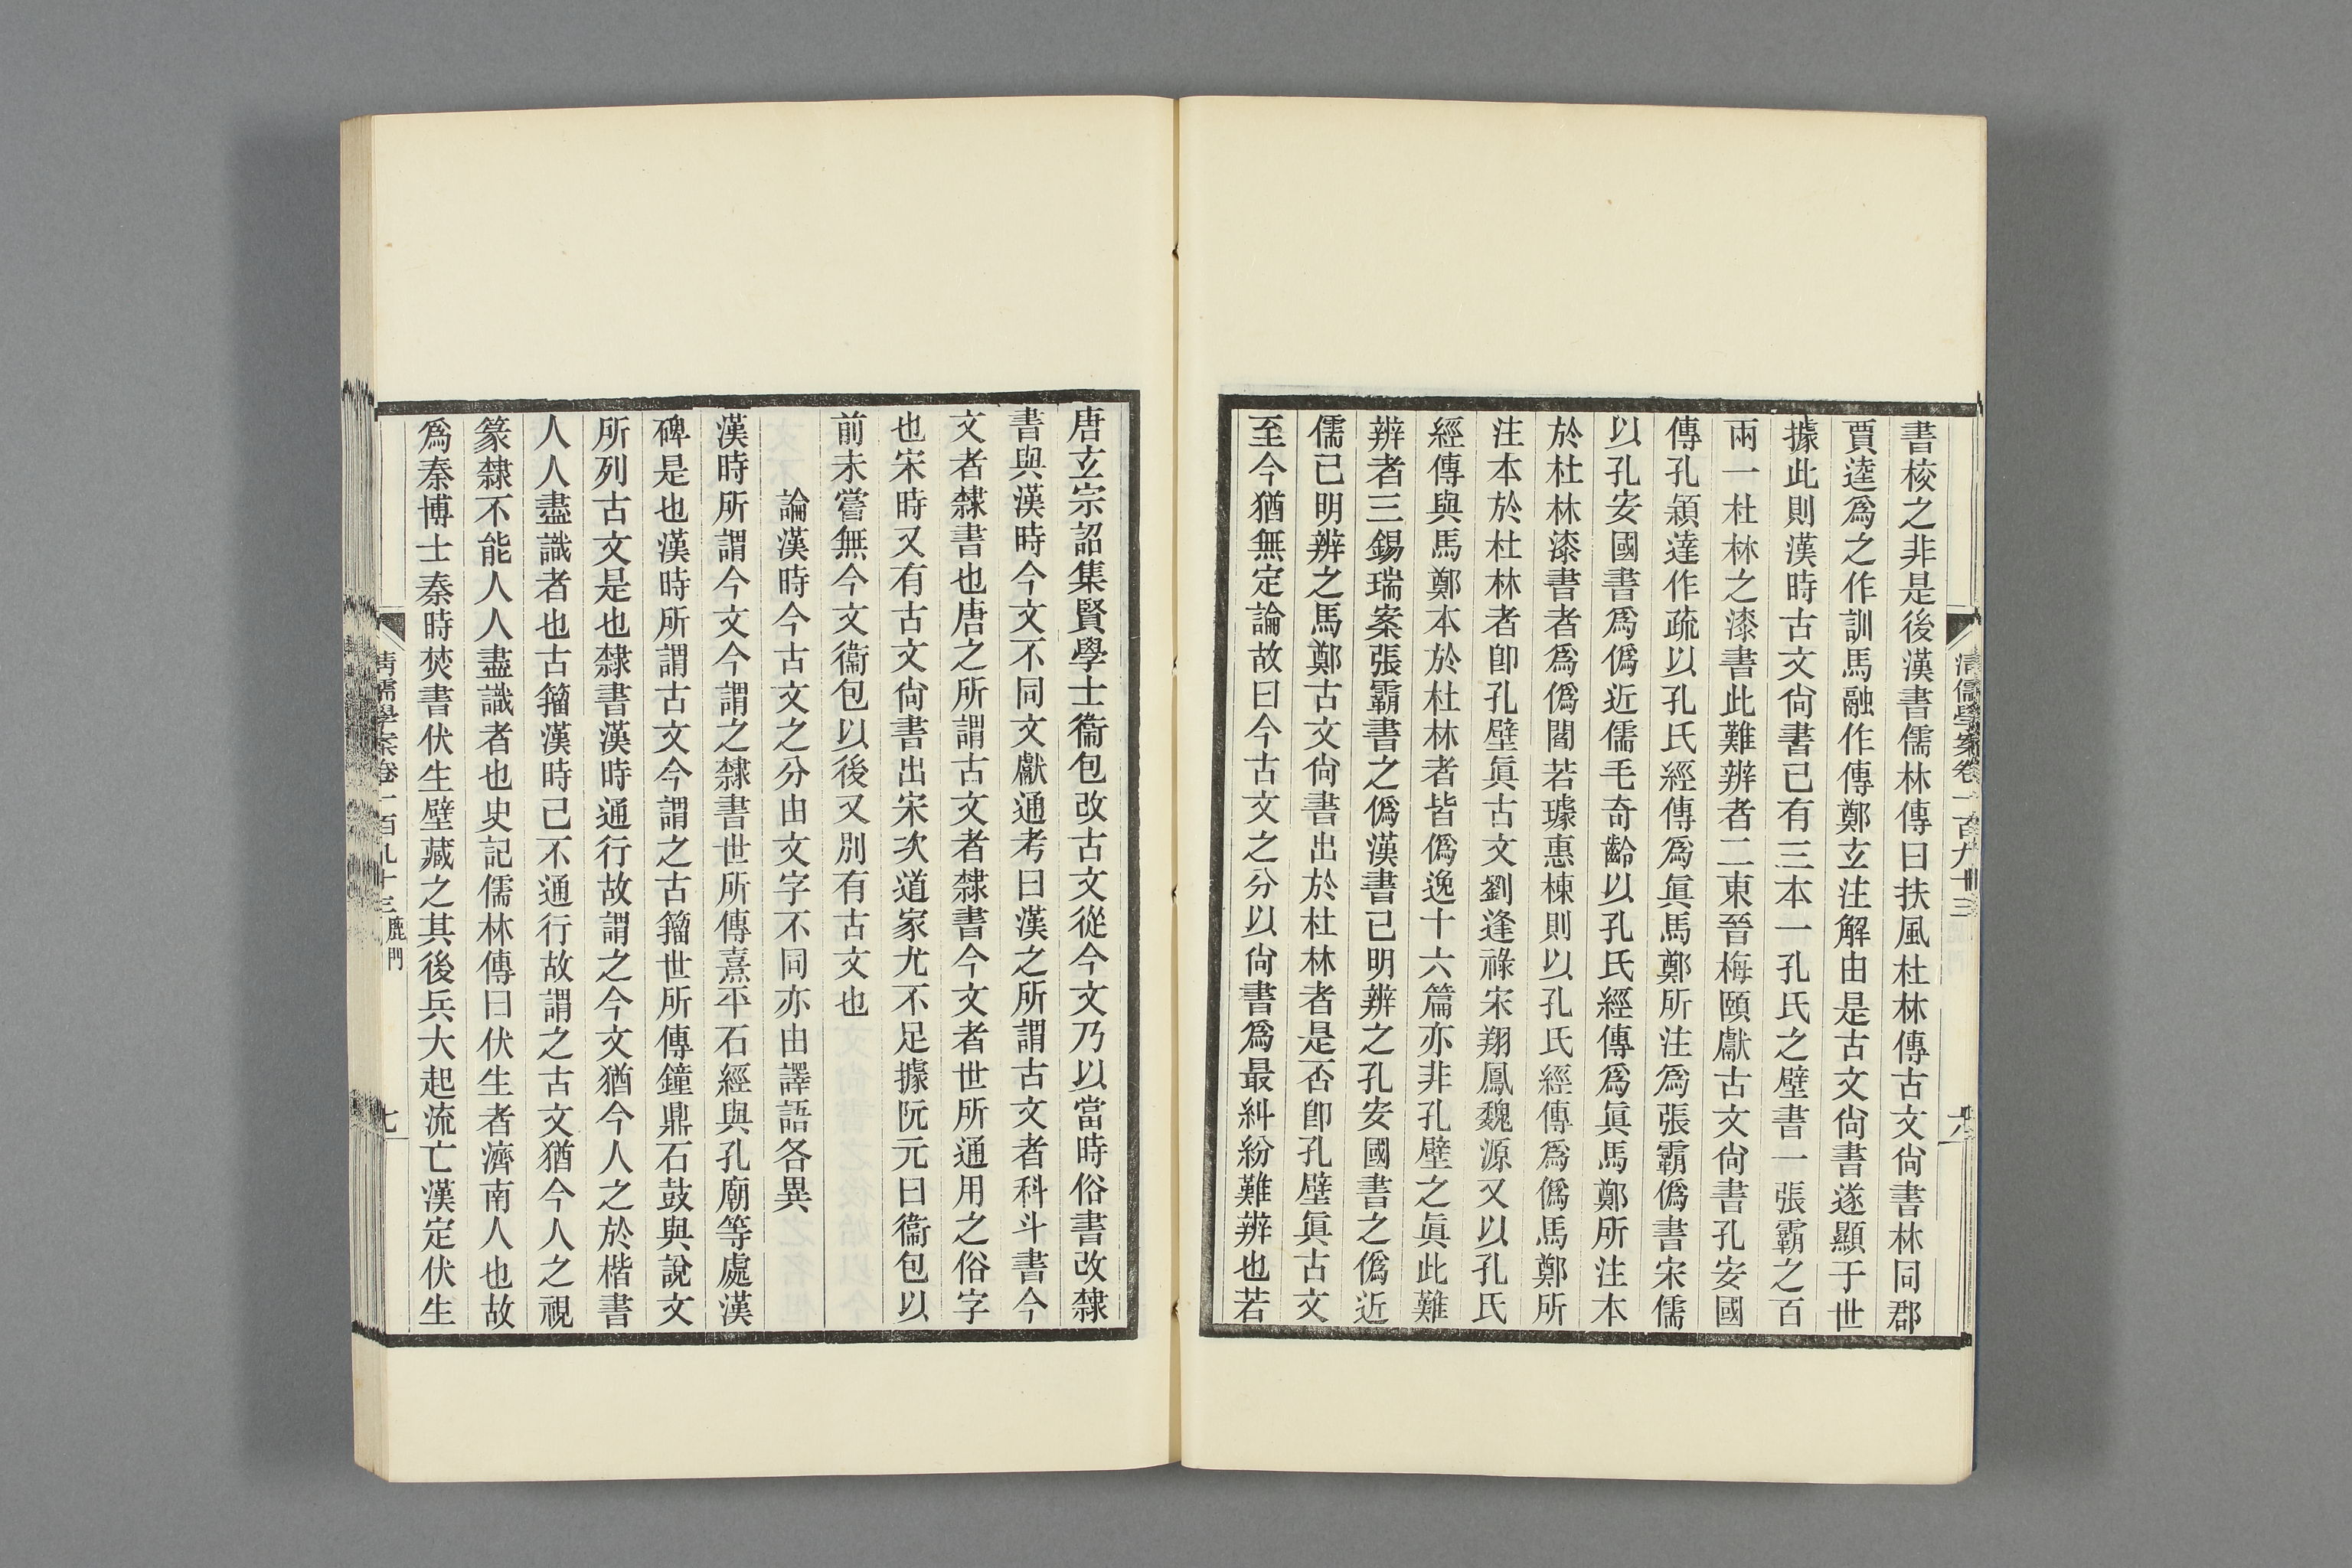 清儒學案卷一百九十三
六
書校之非是後漢書儒林傳曰扶風杜林傳古文尙書林同郡
賈逵爲之作訓馬融作傳鄭玄注解由是古文尙書遂顯于世
據此則漢時古文尙書已有三本一孔氏之壁書一張霸之百
兩一杜林之漆書此難辨者二東晉梅頤獻古文尙書孔安國
傳孔穎達作疏以孔氏經傳爲眞馬鄭所注爲張霸僞書宋儒
以孔安國書爲僞近儒毛奇齡以孔氏經傳爲眞馬鄭所注本
於杜林漆書者爲僞閻若璩惠棟則以孔氏經傳爲僞馬鄭所
注本於杜林者卽孔壁眞古文劉逢祿宋翔鳳魏源又以孔氏
經傳與馬鄭本於杜林者皆僞逸十六篇亦非孔壁之眞此難
辨者三錫瑞案張霸書之僞漢書已明辨之孔安國書之僞近
儒已明辨之馬鄭古文尙書出於杜林者是否卽孔壁眞古文
至今猶無定論故曰今古文之分以尙書爲最糾紛難辨也若
唐玄宗詔集賢學士衞包改古文從今文乃以當時俗書改隸
書與漢時今文不同文獻通考曰漢之所謂古文者科斗書今
文者隸書也唐之所謂古文者隸書今文者世所通用之俗字
也宋時又有古文尙書出宋次道家尤不足據阮元曰衞包以
前未嘗無今文衞包以後又別有古文也
論漢時今古文之分由文字不同亦由譯語各異
漢時所謂今文今謂之隸書世所傳熹平石經與孔廟等處漢
碑是也漢時所謂古文今謂之古籀世所傳鐘鼎石鼓與說文
所列古文是也隸書漢時通行故謂之今文猶今人之於楷書
人人盡識者也古籀漢時已不通行故謂之古文猶今人之視
篆隸不能人人盡識者也史記儒林傳曰伏生者濟南人也故
爲秦博士秦時焚書伏生壁藏之其後兵大起流亡漢定伏生
清儒學案卷一百九十三 鹿門
七